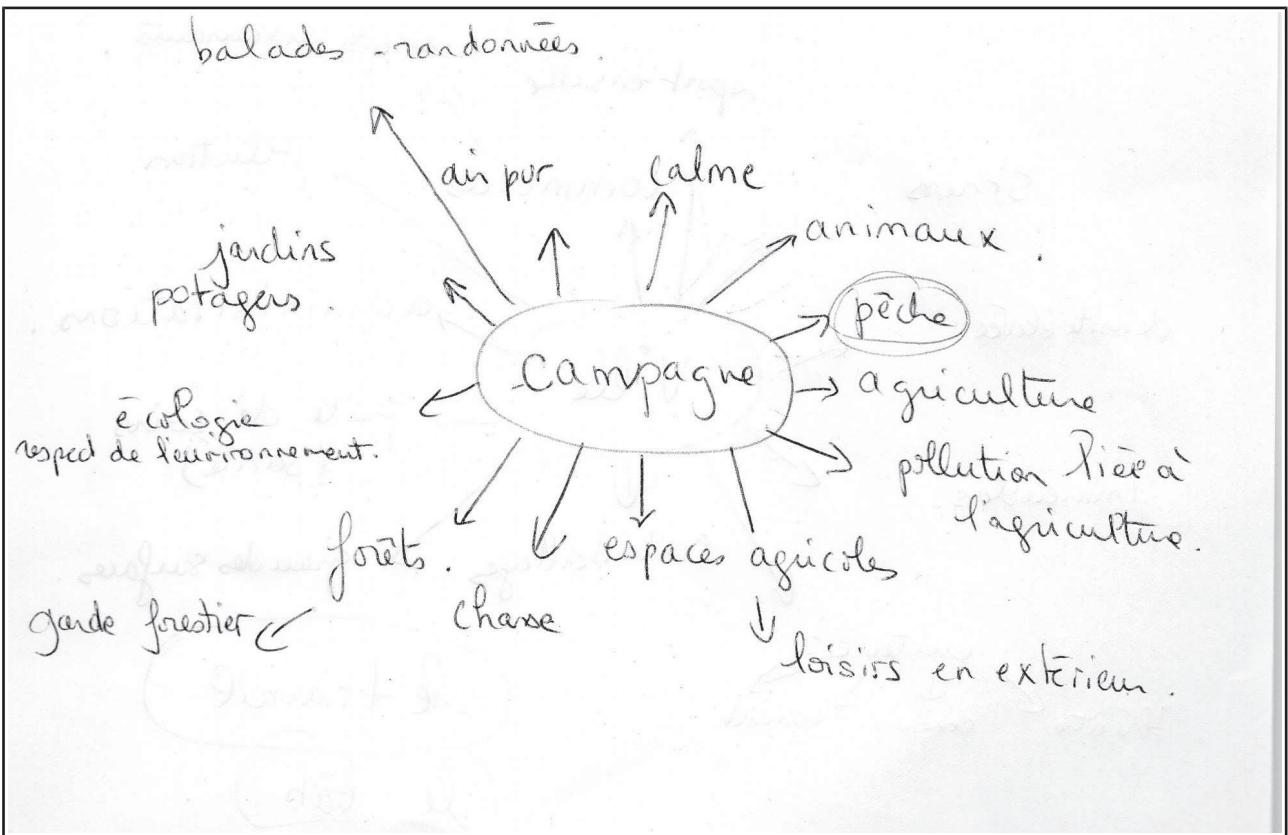 balades - randonnées.
air pur
calme
animaux.
jardins
potagers
pêche
Campagne
agriculture
écologie
respect de l'environnement.
pollution liée à
l'agriculture.
forêts.
espaces agricoles
garde forestier
chasse
loisirs en extérieur.